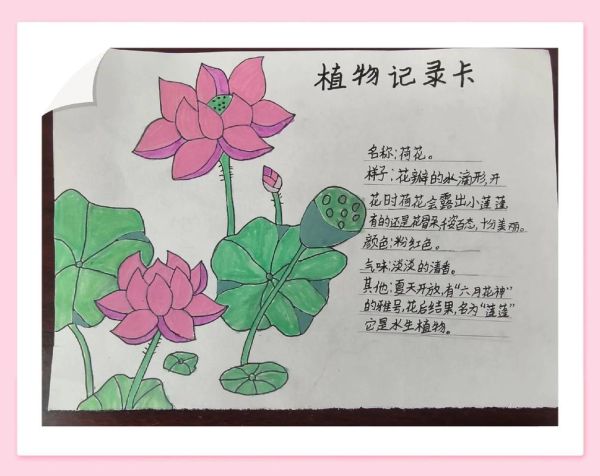 植物记录卡
名称：荷花。
样子：花瓣的水滴形，开
花时荷花会露出小莲蓬
有的还是花骨朵，千姿百态，十分美丽。
颜色：粉红色。
气味：淡淡的清香。
其他：夏天开放，有“六月花神”
的雅号，花后结果，名为“莲蓬”
它是水生植物。